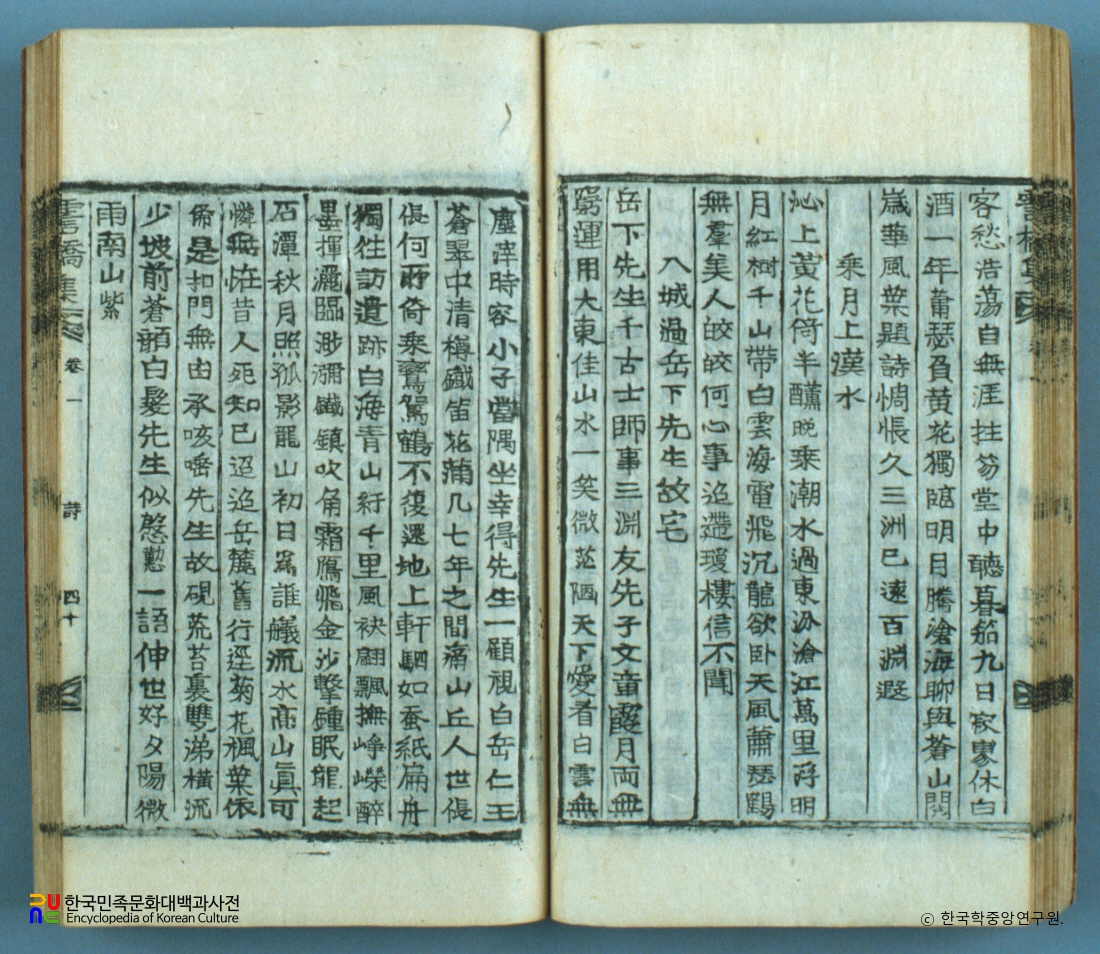 客愁浩蕩自無涯拄笏堂中聽暮笳九日家家休白
酒一年蕭瑟負黄花獨臨明月騰滄海聊與蒼山閱
歲華風葉題詩惆悵久三洲已遠百淵遐
乘月上漢水
沁上黃花倚半醺晚乘潮水過東汾滄江萬里浮明
月紅樹千山帶白雲海電飛沉龍欲臥天風蕭瑟鶴
無羣美人皎皎何心事迢遰瓊樓信不聞
入城過岳下先生故宅
岳下先生千古士師事三淵友先子文章霞月兩無
窮運用大東佳山水一笑微茫陋天下愛看白雲無
塵滓時容小子當隅坐幸得先生一顧視白岳仁王
蒼翠中清樽鐵笛花蒲几七年之間痛山丘人世倀
倀何所倚乘鸞駕鶴不復還地上軒駟如蚕紙扁舟
獨徃訪遺跡白海青山紆千里風袂翩飄撫崢嶸醉
墨揮灑臨渺瀰鐵鎮吹角霜鴈飛金沙擊鍾眠龍起
石潭秋月照孤影龍山初日爲誰艤流水高山眞可
憐無恠昔人死知己迢迢岳麓舊行逕菊花楓葉依
俙是扣門無由承咳唾先生故硯荒苔裏雙涕橫流
少坡前蒼頭白髮先生似慇懃一語伸世好夕陽微
雨南山紫
雲橋集 卷一 詩 四十
한국민족문화대백과사전
Encyclopedia of Korean Culture
ⓒ 한국학중앙연구원.